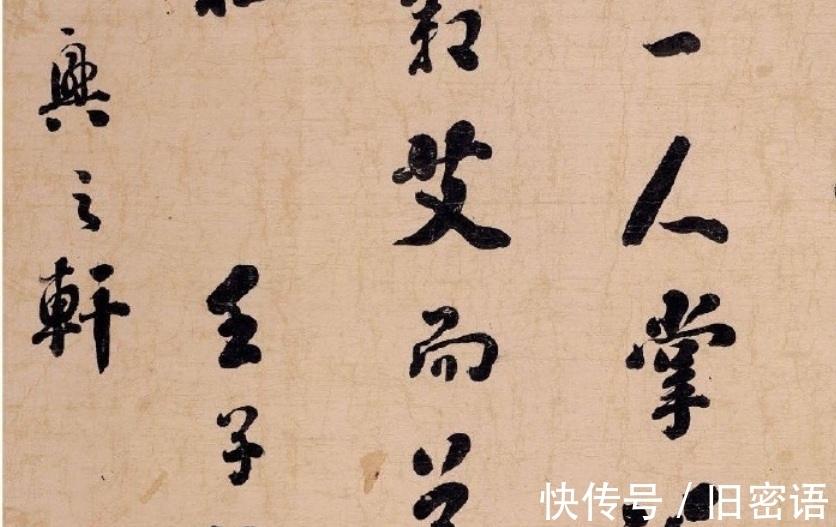 一人掌
艾而
壬子
興之軒
快传号 / 旧密语